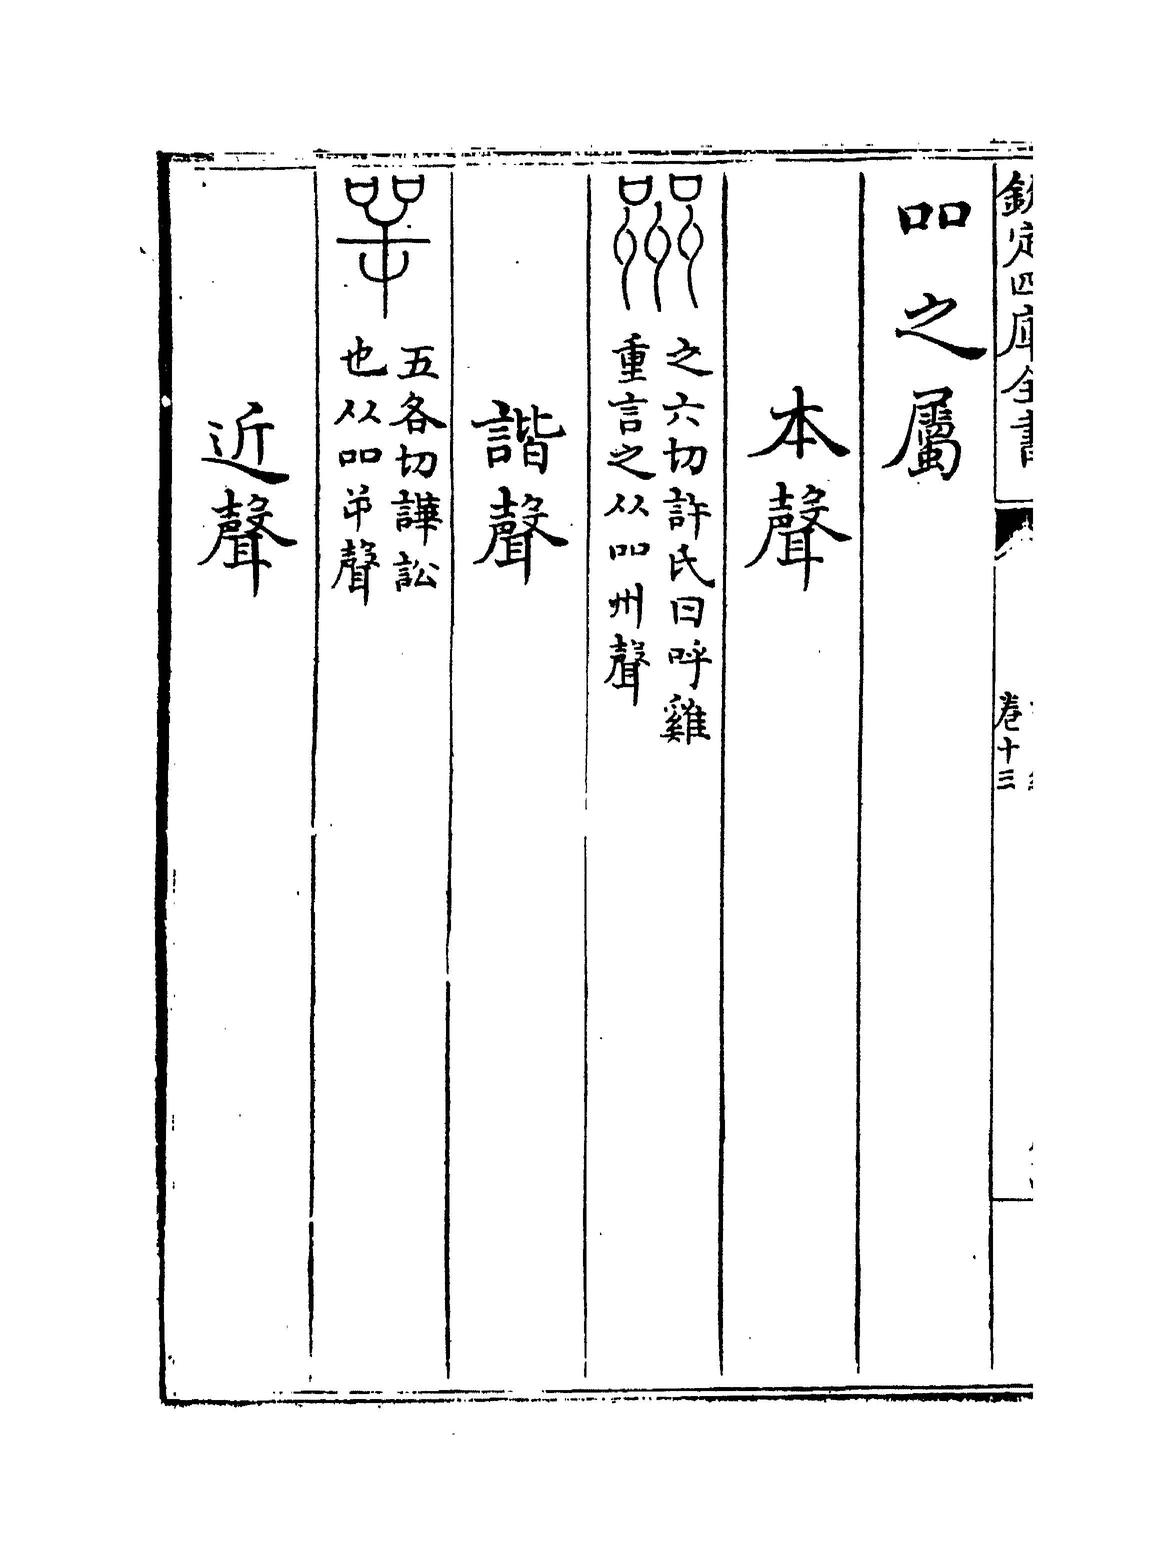 欽定四庫全書
卷十三
吅之屬
本聲
之六切許氏曰呼雞
重言之从吅州聲
諧聲
五各切譁訟
也从吅屰聲
近聲